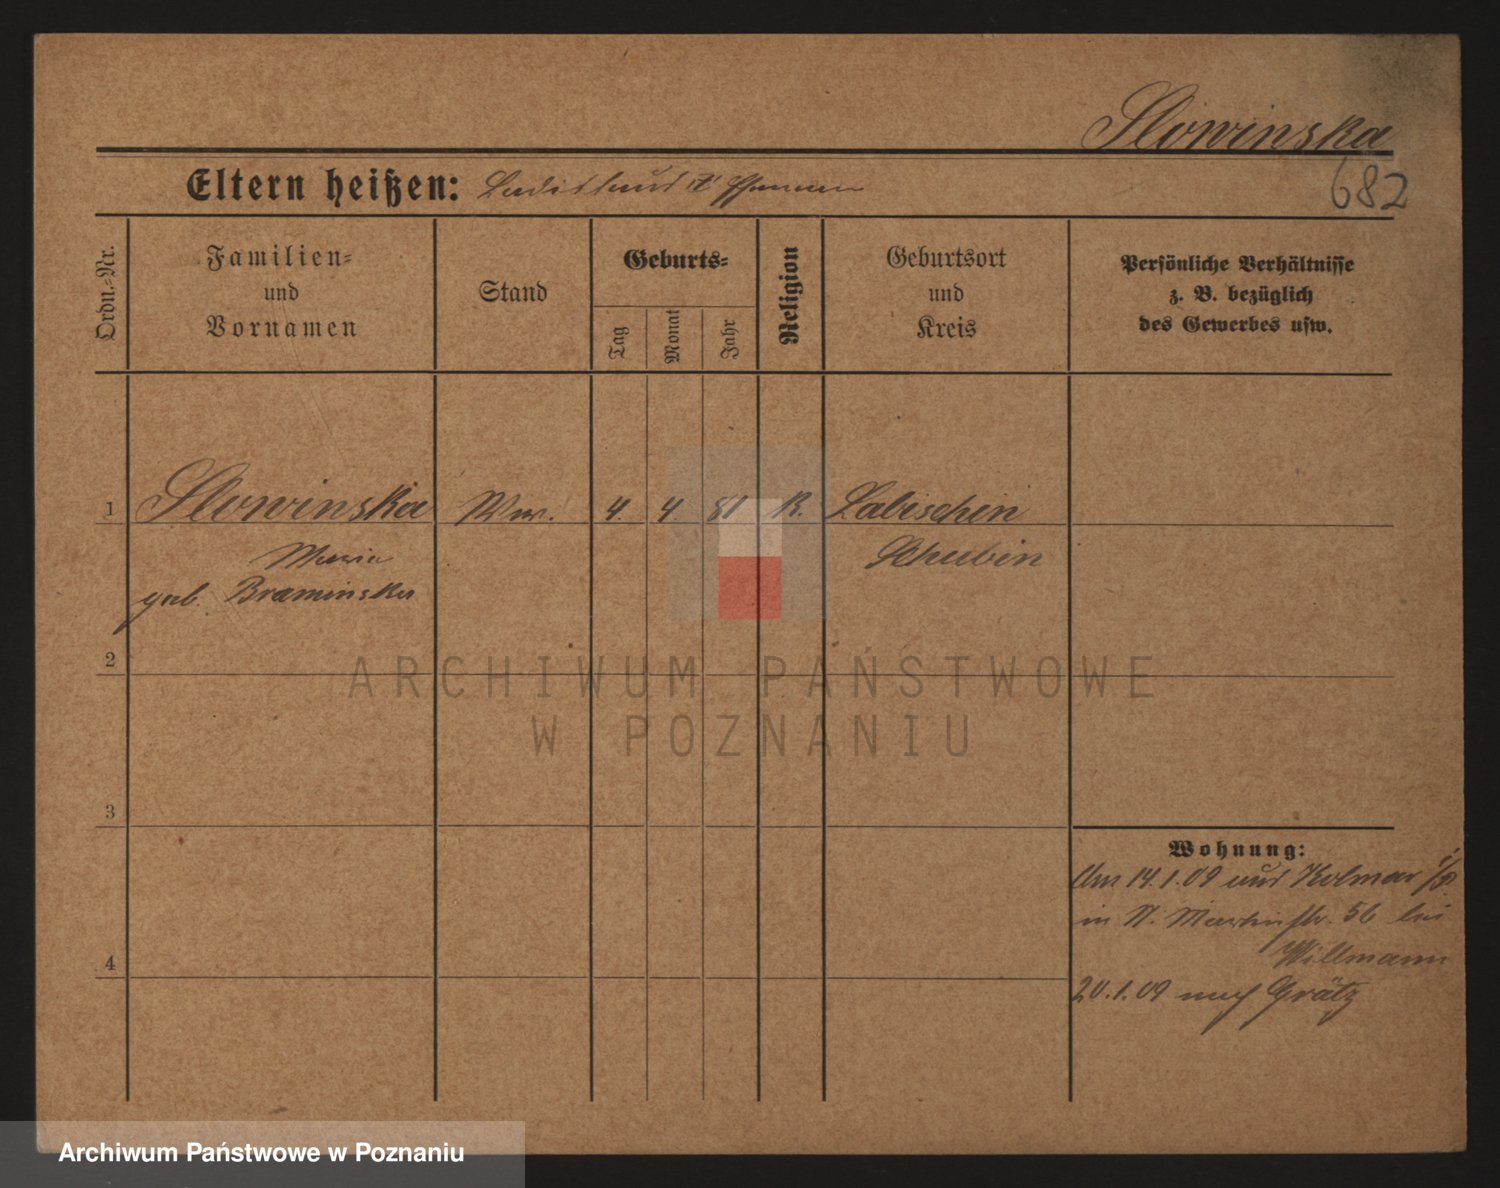 Slowinska
682
Eltern heißen: Ladislaus u
Ordn.-Nr.
Familien-
und
Vornamen
Stand
Geburts-
Tag
Monat
Jahr
Religion
Geburtsort
und
Kreis
Persönliche Verhältnisse
z. B. bezüglich
des Gewerbes usw.
1 Slowinska Ww. 4. 4. 81 K. Labischin
Maria Schubin
geb. Braminska
2
3
4
Wohnung:
Am 14.1.09 aus Kolmar i/P
in St. Martinstr. 56 bei
Willmann
20.1.09 nach Grätz
ARCHIWUM PAŃSTWOWE
W POZNANIU
Archiwum Państwowe w Poznaniu